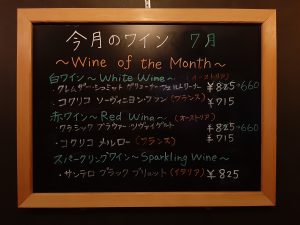 今月のワイン 7月
~Wine of the Month~
白ワイン~White Wine~ (オーストリア)
・クレムザー・シュミット グリューナーヴェルトリーナー ¥825→660
・コクリコ ソーヴィニヨン・ブラン (フランス) ¥715
赤ワイン~Red Wine~ (オーストリア)
・クラシック ブラウアー ツヴァイゲルト ¥825→660
・コクリコ メルロー (フランス) ¥715
スパークリングワイン~Sparkling Wine~
・サンテロ ブラック ブリュット (イタリア) ¥825